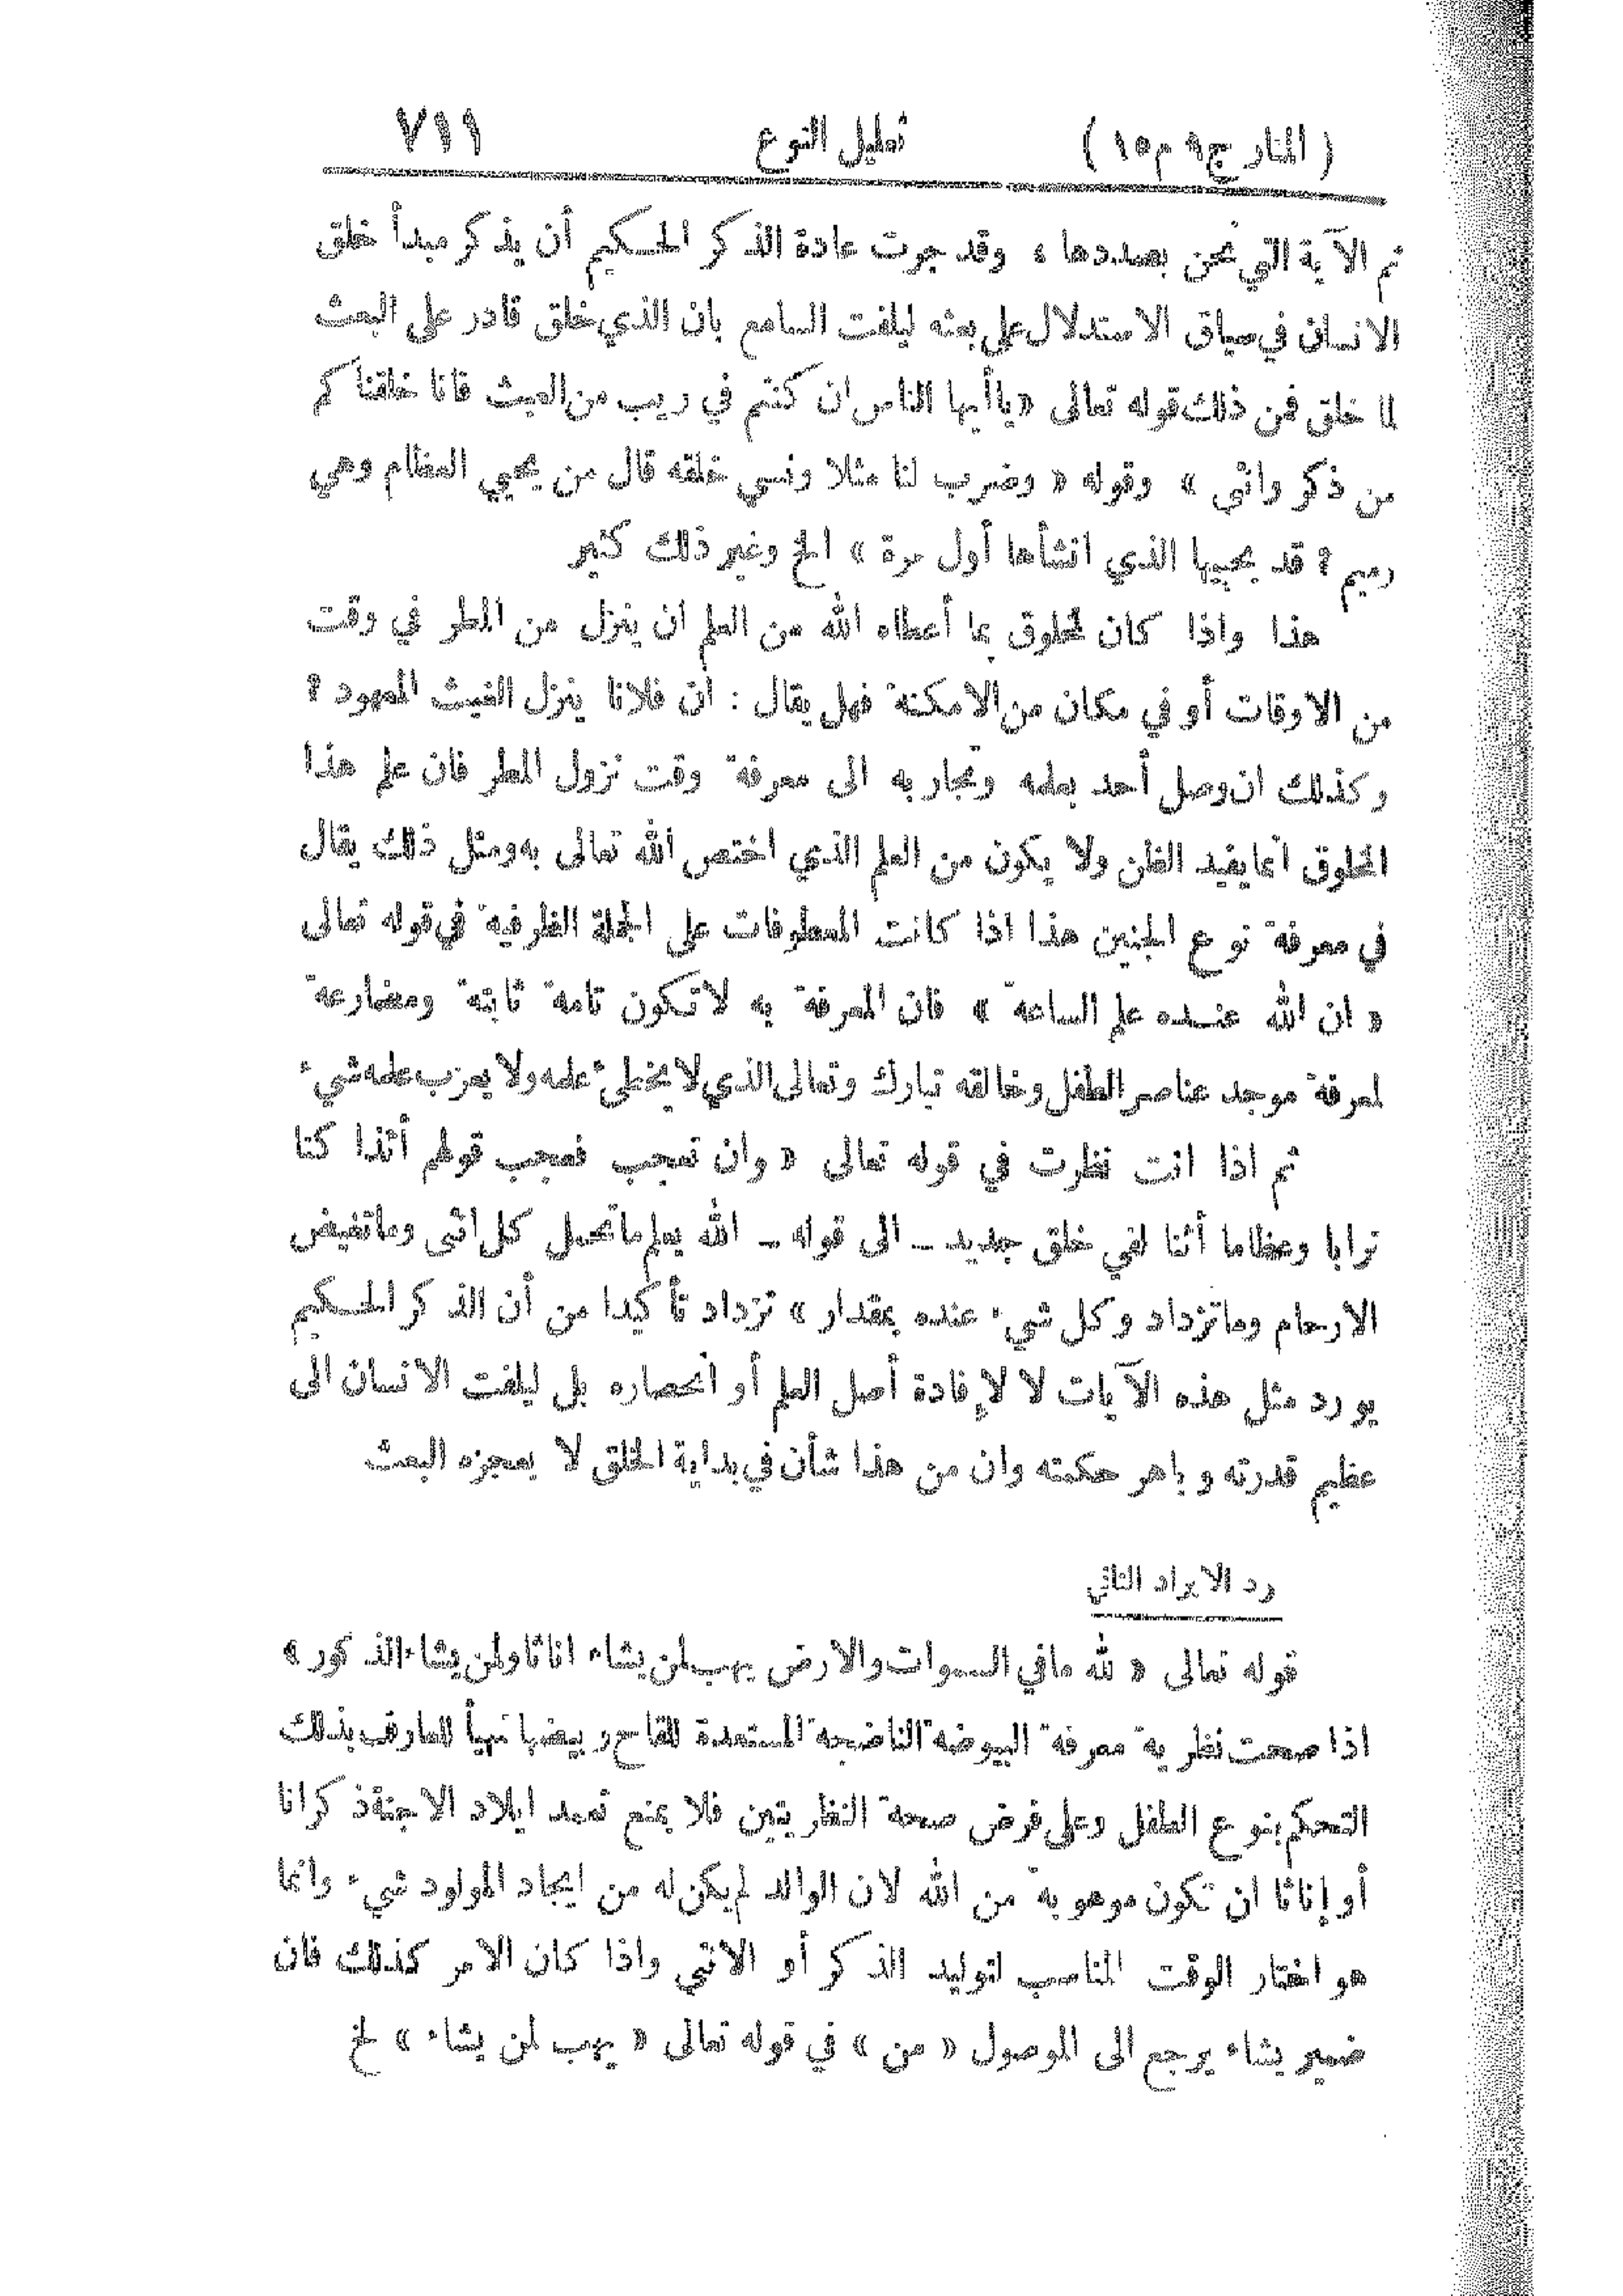 ( المنار ج ٩ م ١٥ ) تعليل النوع ٧١١
ثم الآية التي نحن بصددها ، وقد جرت عادة الذكر الحكيم أن يذكر مبدأ خلق
الانسان في سياق الاستدلال على بعثه ليلفت السامع بان الذي خلق قادر على البعث
لما خلق فمن ذلك قوله تعالى « يا أيها الناس ان كنتم في ريب من البعث فانا خلقناكم
من ذكر وانثى » وقوله « وضرب لنا مثلا ونسي خلقه قال من يحيي العظام وهي
رميم ؟ قد يحييها الذي انشأها أول مرة » الخ وغير ذلك كثير
هذا واذا كان لمخلوق بما أعطاه الله من العلم ان ينزل من المطر في وقت
من الاوقات أو في مكان من الامكنة فهل يقال : ان فلانا ينزل الغيث المعهود ؟
وكذلك ان وصل أحد بعلمه وتجاربه الى معرفة وقت نزول المطر فان علم هذا
المخلوق انما يفيد الظن ولا يكون من العلم الذي اختص الله تعالى به ومثل ذلك يقال
في معرفة نوع الجنين هذا اذا كانت المعطوفات على الجملة الظرفية في قوله تعالى
« ان الله عنده علم الساعة » فان المعرفة به لا تكون تامة ثابتة ومضارعة
لمعرفة موجد عناصر الطفل وخالقه تبارك وتعالى الذي لا يخطئ علمه ولا يعزب علمه شيء
ثم اذا انت نظرت في قوله تعالى « وان تعجب فعجب قولهم أئذا كنا
ترابا وعظاما أئنا لفي خلق جديد ــ الى قوله ــ الله يعلم ما تحمل كل انثى وما تغيض
الارحام وما تزداد وكل شيء عنده بمقدار » تزداد تأكيدا من أن الذكر الحكيم
يورد مثل هذه الآيات لا لإفادة أصل العلم أو انحصاره بل ليلفت الانسان الى
عظيم قدرته وباهر حكمته وان من هذا شأن في بداية الخلق لا يعجزه البعث
رد الايراد الثاني
قوله تعالى « لله ما في السموات والارض يهب لمن يشاء اناثا ولمن يشاء الذكور »
اذا صحت نظرية معرفة البيوضة الناضجة المستعدة للقاح وبيضها تهيأ للعارف بذلك
التحكم بنوع الطفل وعلى فرض صحة النظريتين فلا يمنع تعمد ايلاد الاجنة ذكرانا
أو إناثا ان تكون موهوبة من الله لان الوالد لم يكن له من ايجاد المولود شيء وانما
هو اختار الوقت المناسب لتوليد الذكر أو الانثى واذا كان الامر كذلك فان
ضمير يشاء يرجع الى الموصول « من » في قوله تعالى « يهب لمن يشاء » الخ